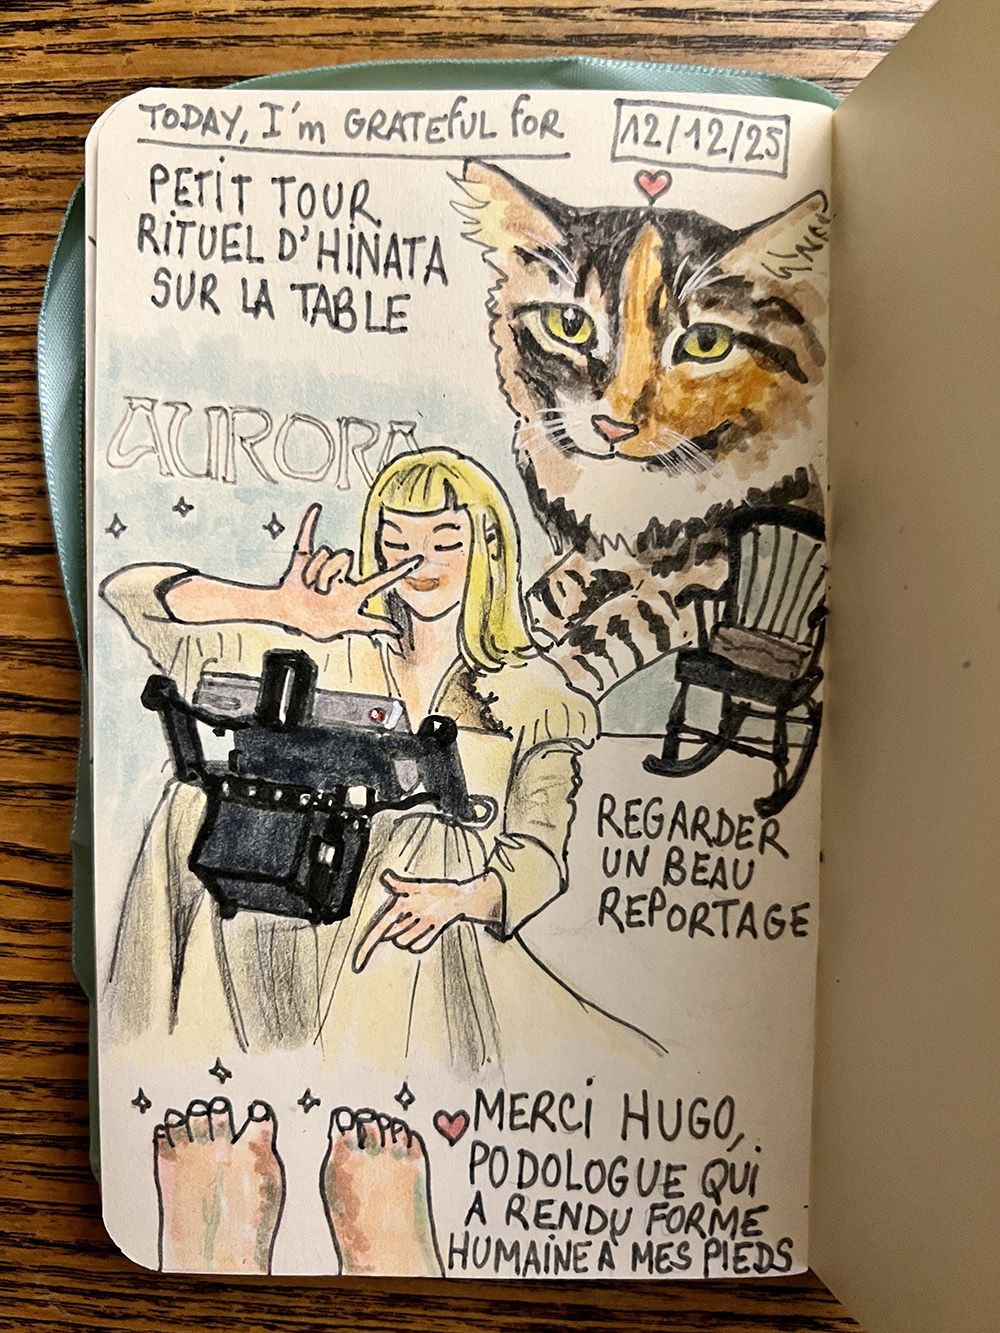 TODAY, I'm GRATEfUL foR
12/12/25
PETIT TOUR
RITUEL D'HINATA
SUR LA TABLE
AURORA
REGARDER
UN BEAU
REPORTAGE
MERCI HUGO,
PODOLOGUE QUI
A RENDU FORME
HUMAINE À MES PIEDS